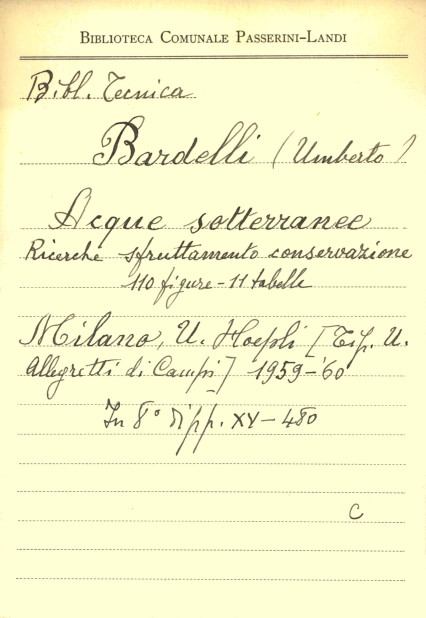 BIBLIOTECA COMUNALE PASSERINI-LANDI
Bibl. Tecnica
Bardelli (Umberto)
Acque sotterranee
Ricerche sfruttamento conservazione
110 figure - 11 tabelle
Milano, U. Hoepli [Tip. U.
Allegretti di Campi] 1959-'60
In 8° di pp. XV - 480
C